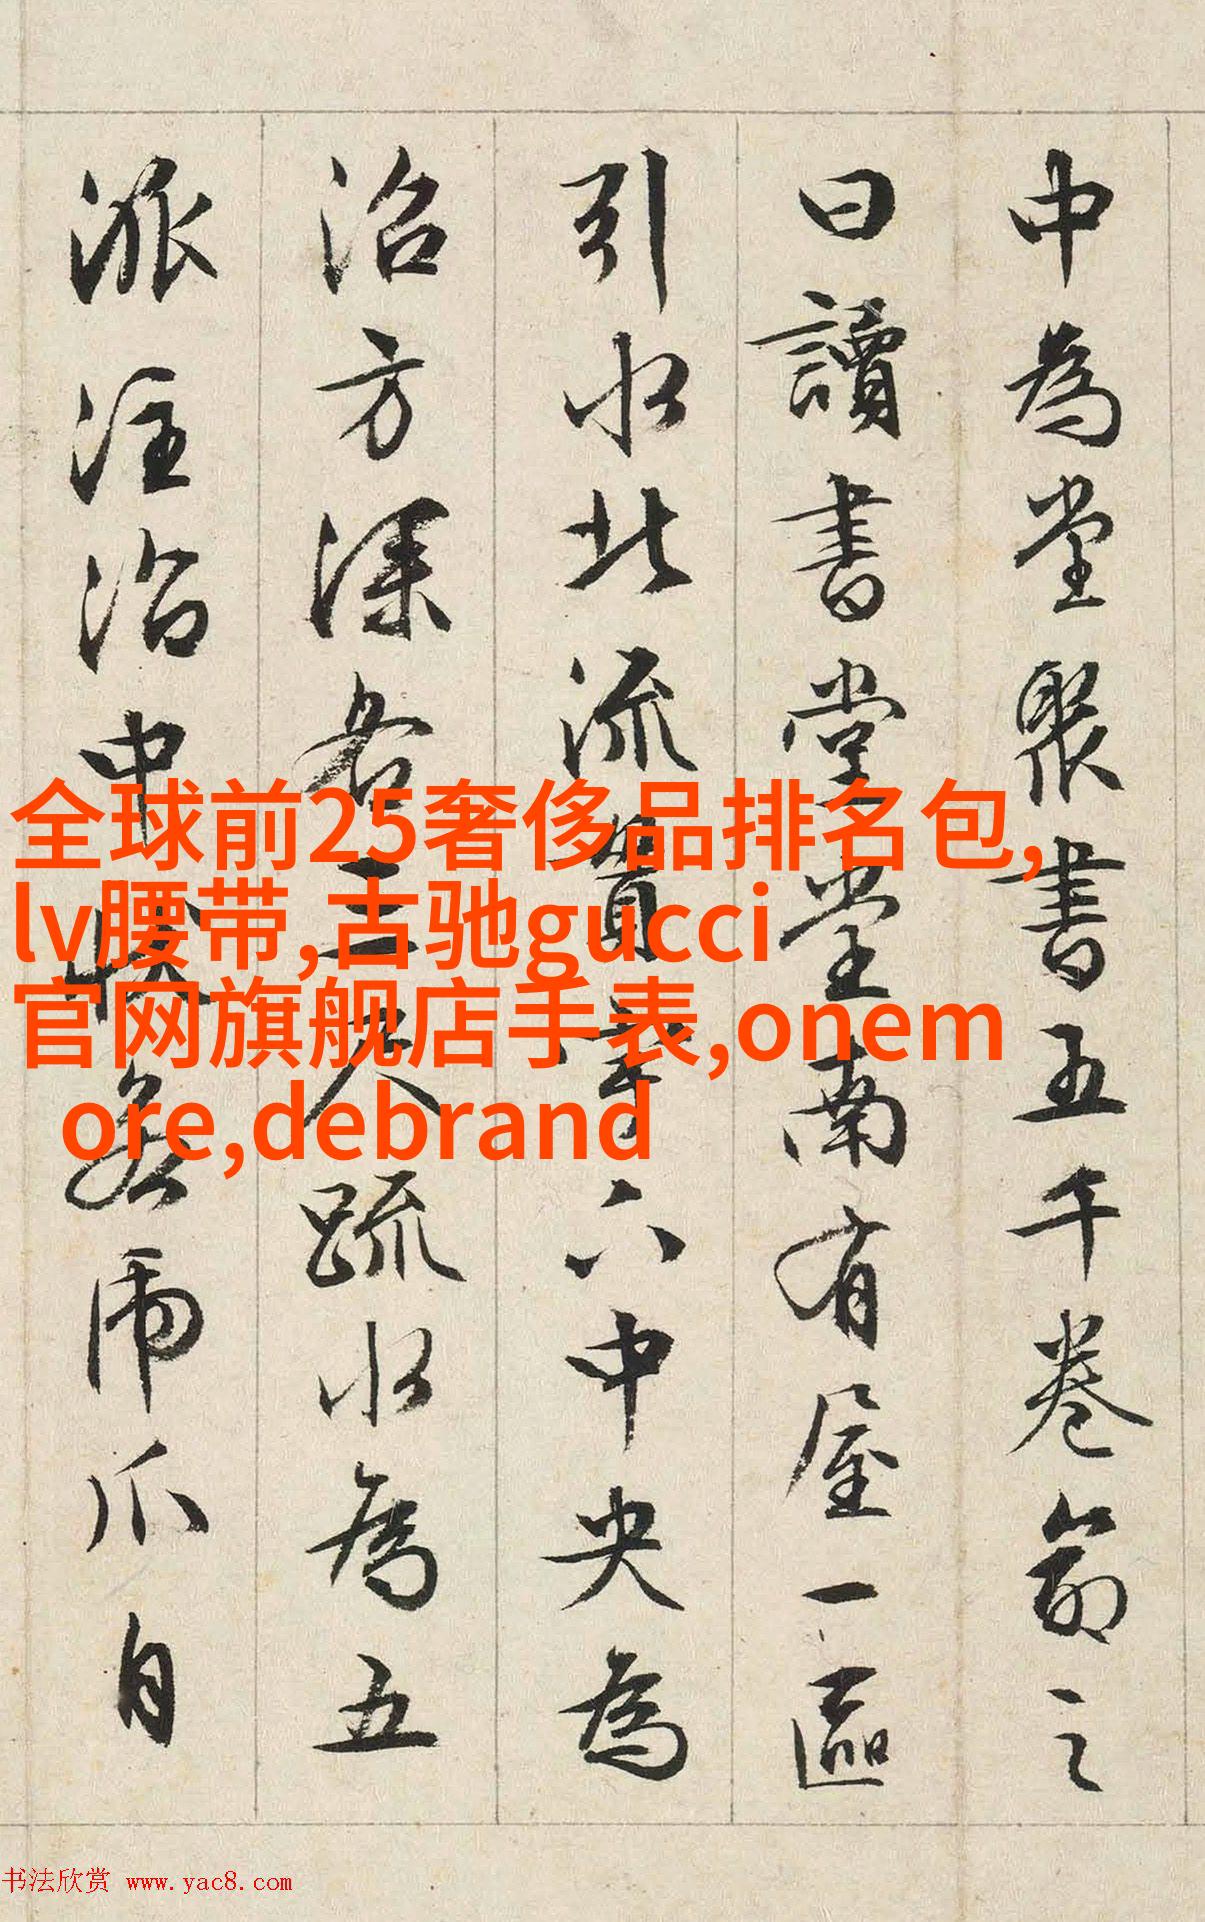 中為堂聚書五千卷命之
曰讀書堂堂南有屋一區
引水北流貫宇下中央為
沼方深各三尺疏水為五
派注沼中狀若虎爪自
全球前25奢侈品排名包,
lv腰带,古驰gucci
官网旗舰店手表,onem
ore,debrand
书法欣赏 www.yac8.com